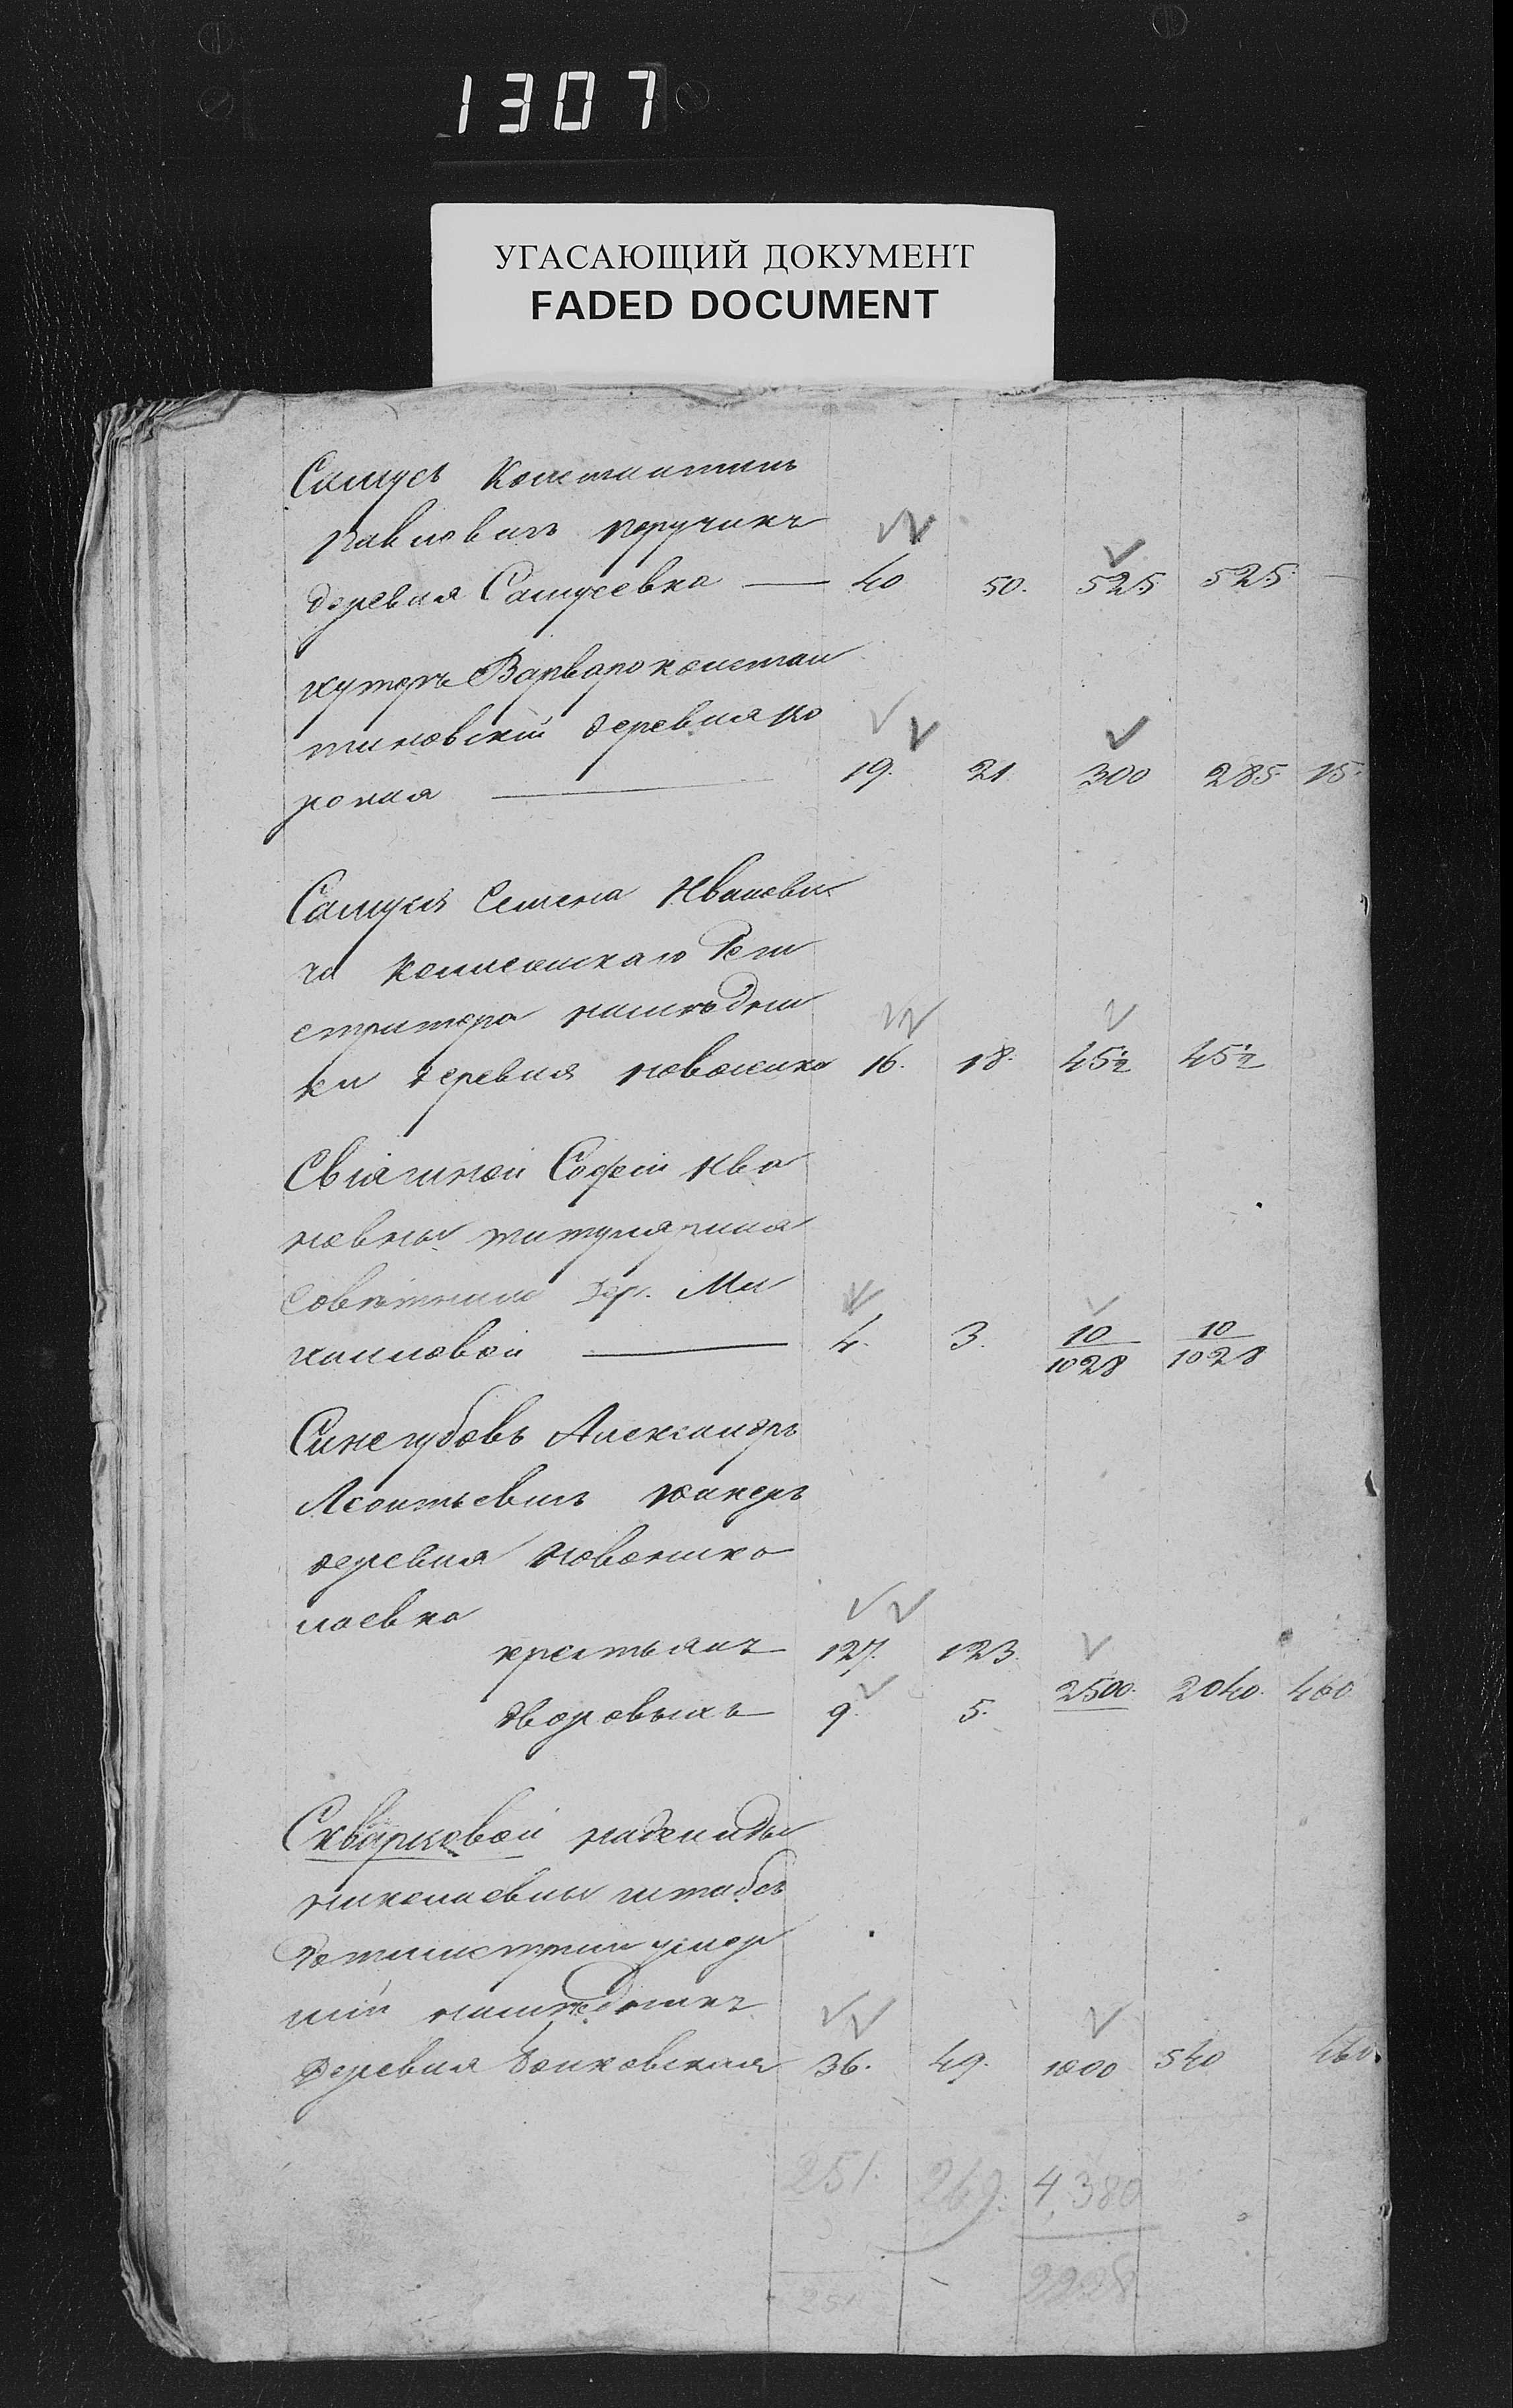 1307
УГАСАЮЩИЙ ДОКУМЕНТ
FADED DOCUMENT
Самусь Константинъ
Павловичъ поручикъ
деревня Самусевка — 40 50. 525 525 —
хуторъ Варваро констан
тиновскій деревня то
рохня — 19. 21. 300 285 15.
Самуся Семена Иванови
ча Колежскаго Реги
стратора наслѣдни
ки деревня Новоселка 16. 18. 45½ 45½
Свіягиной Софіи Ива
новны титулярная
Совѣтница Дер. Ми
хайловой — 4. 3. 10/1028 10/1028
Синегубовъ Александръ
Леонтьевичъ юнкеръ
деревня Новонико
лаевка
крестьянъ 127. 123. 2500. 2040. 460
дворовыхъ 9. 5.
Скварковой Надежды
николаевны штабсъ
Ротмистрши умер
шій наслѣдникъ
деревня 36. 49. 1000 540 460.
251. 269. 4,380
251 2228